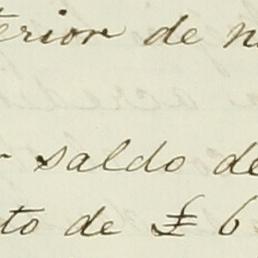 terior de n
r saldo de
to de £ 6